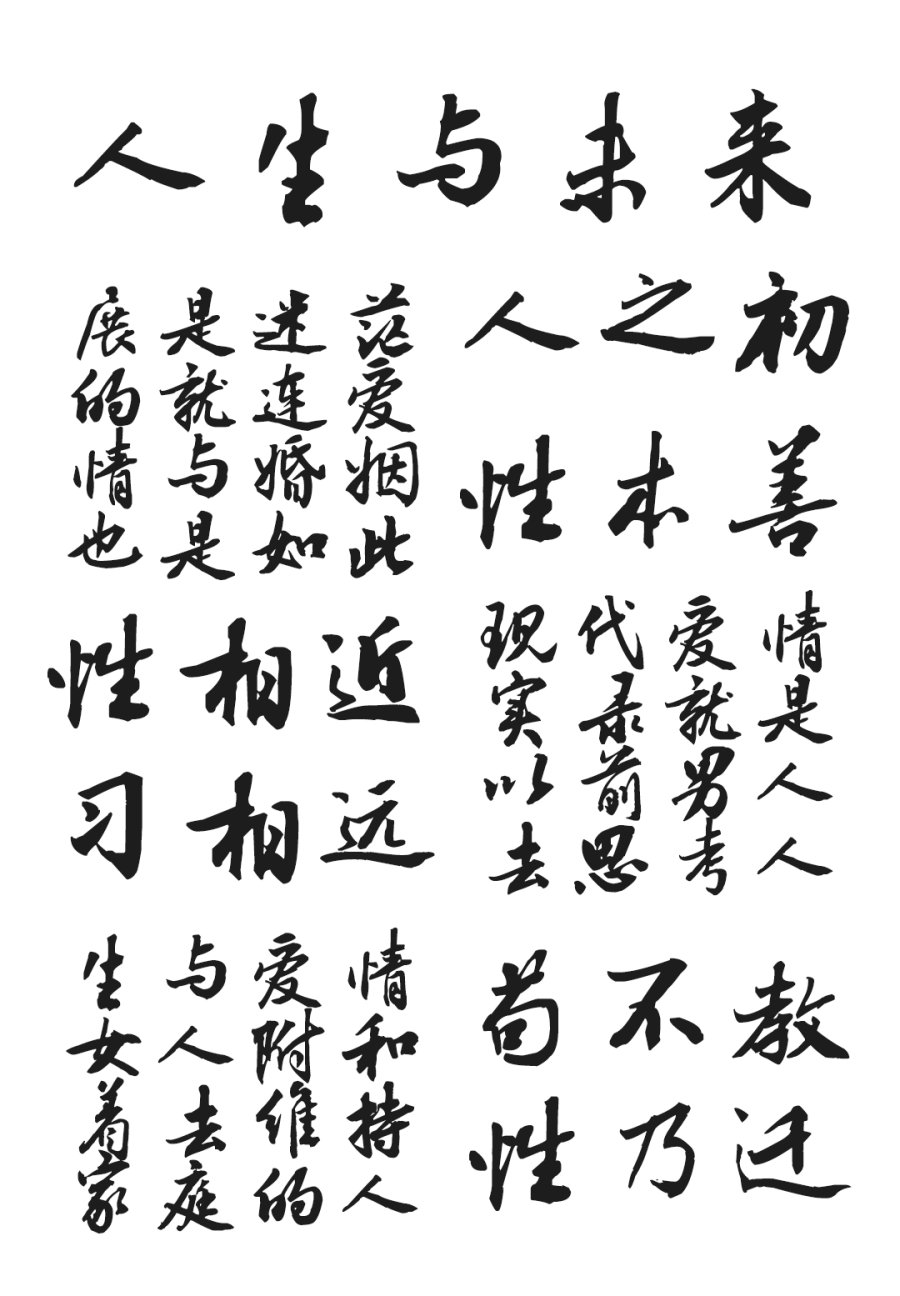 人生与未来
人之初
性本善
展是迷茫
的就连爱
情与婚姻
也是如此
性相近
习相远
现代爱情
实录就是
以前男人
去思考人
苟不教
性乃迁
生与爱情
女人附和
着去维持
家庭的人